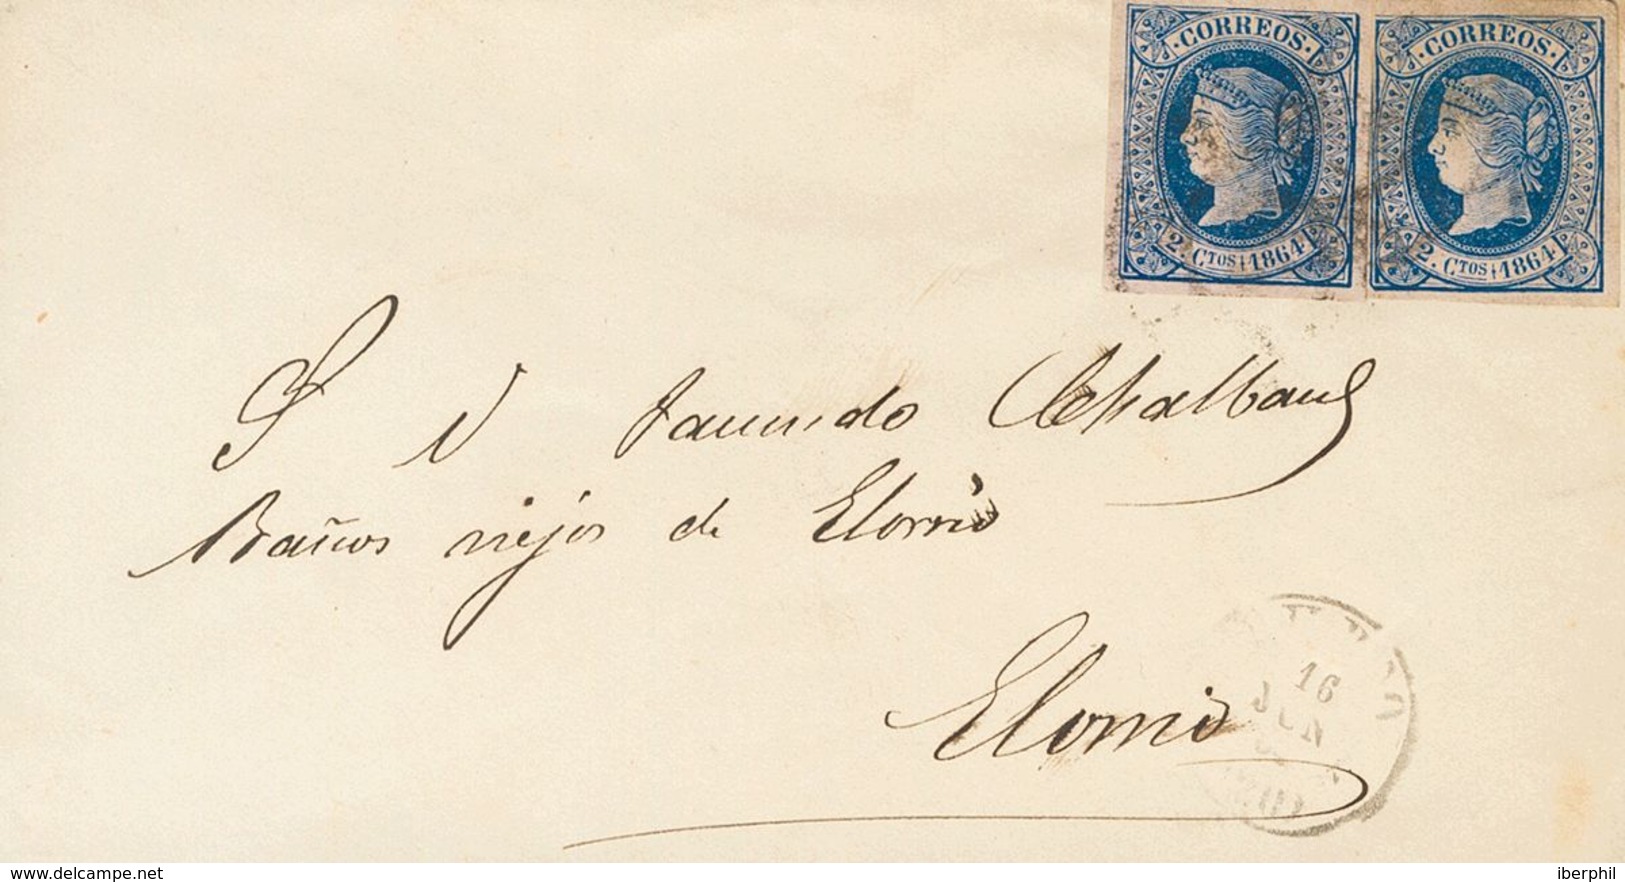 CORREOS.
2. CTOS 1864
CORREOS.
2. CTOS 1864
S D Facundo Chalbaud
Baños viejos de Elorrio
Elorrio
16
JUN
delcampe.net
iberphil